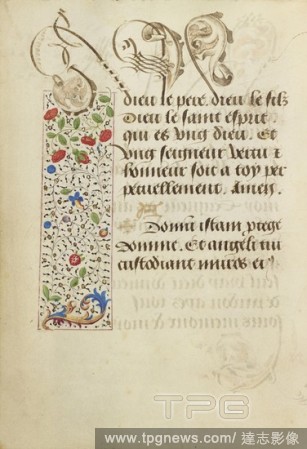 dieu le pere. dieu le filz
Dieu le saint esprit
qui es vng dieu. Et
vng seigneur vertu &
honneur soit a toy per
petuellement. Amen.
Domū istam protege
Domine. Et angeli tui
custodiant muros ei⁹
TPG
www.tpgnews.com/ 達志影像